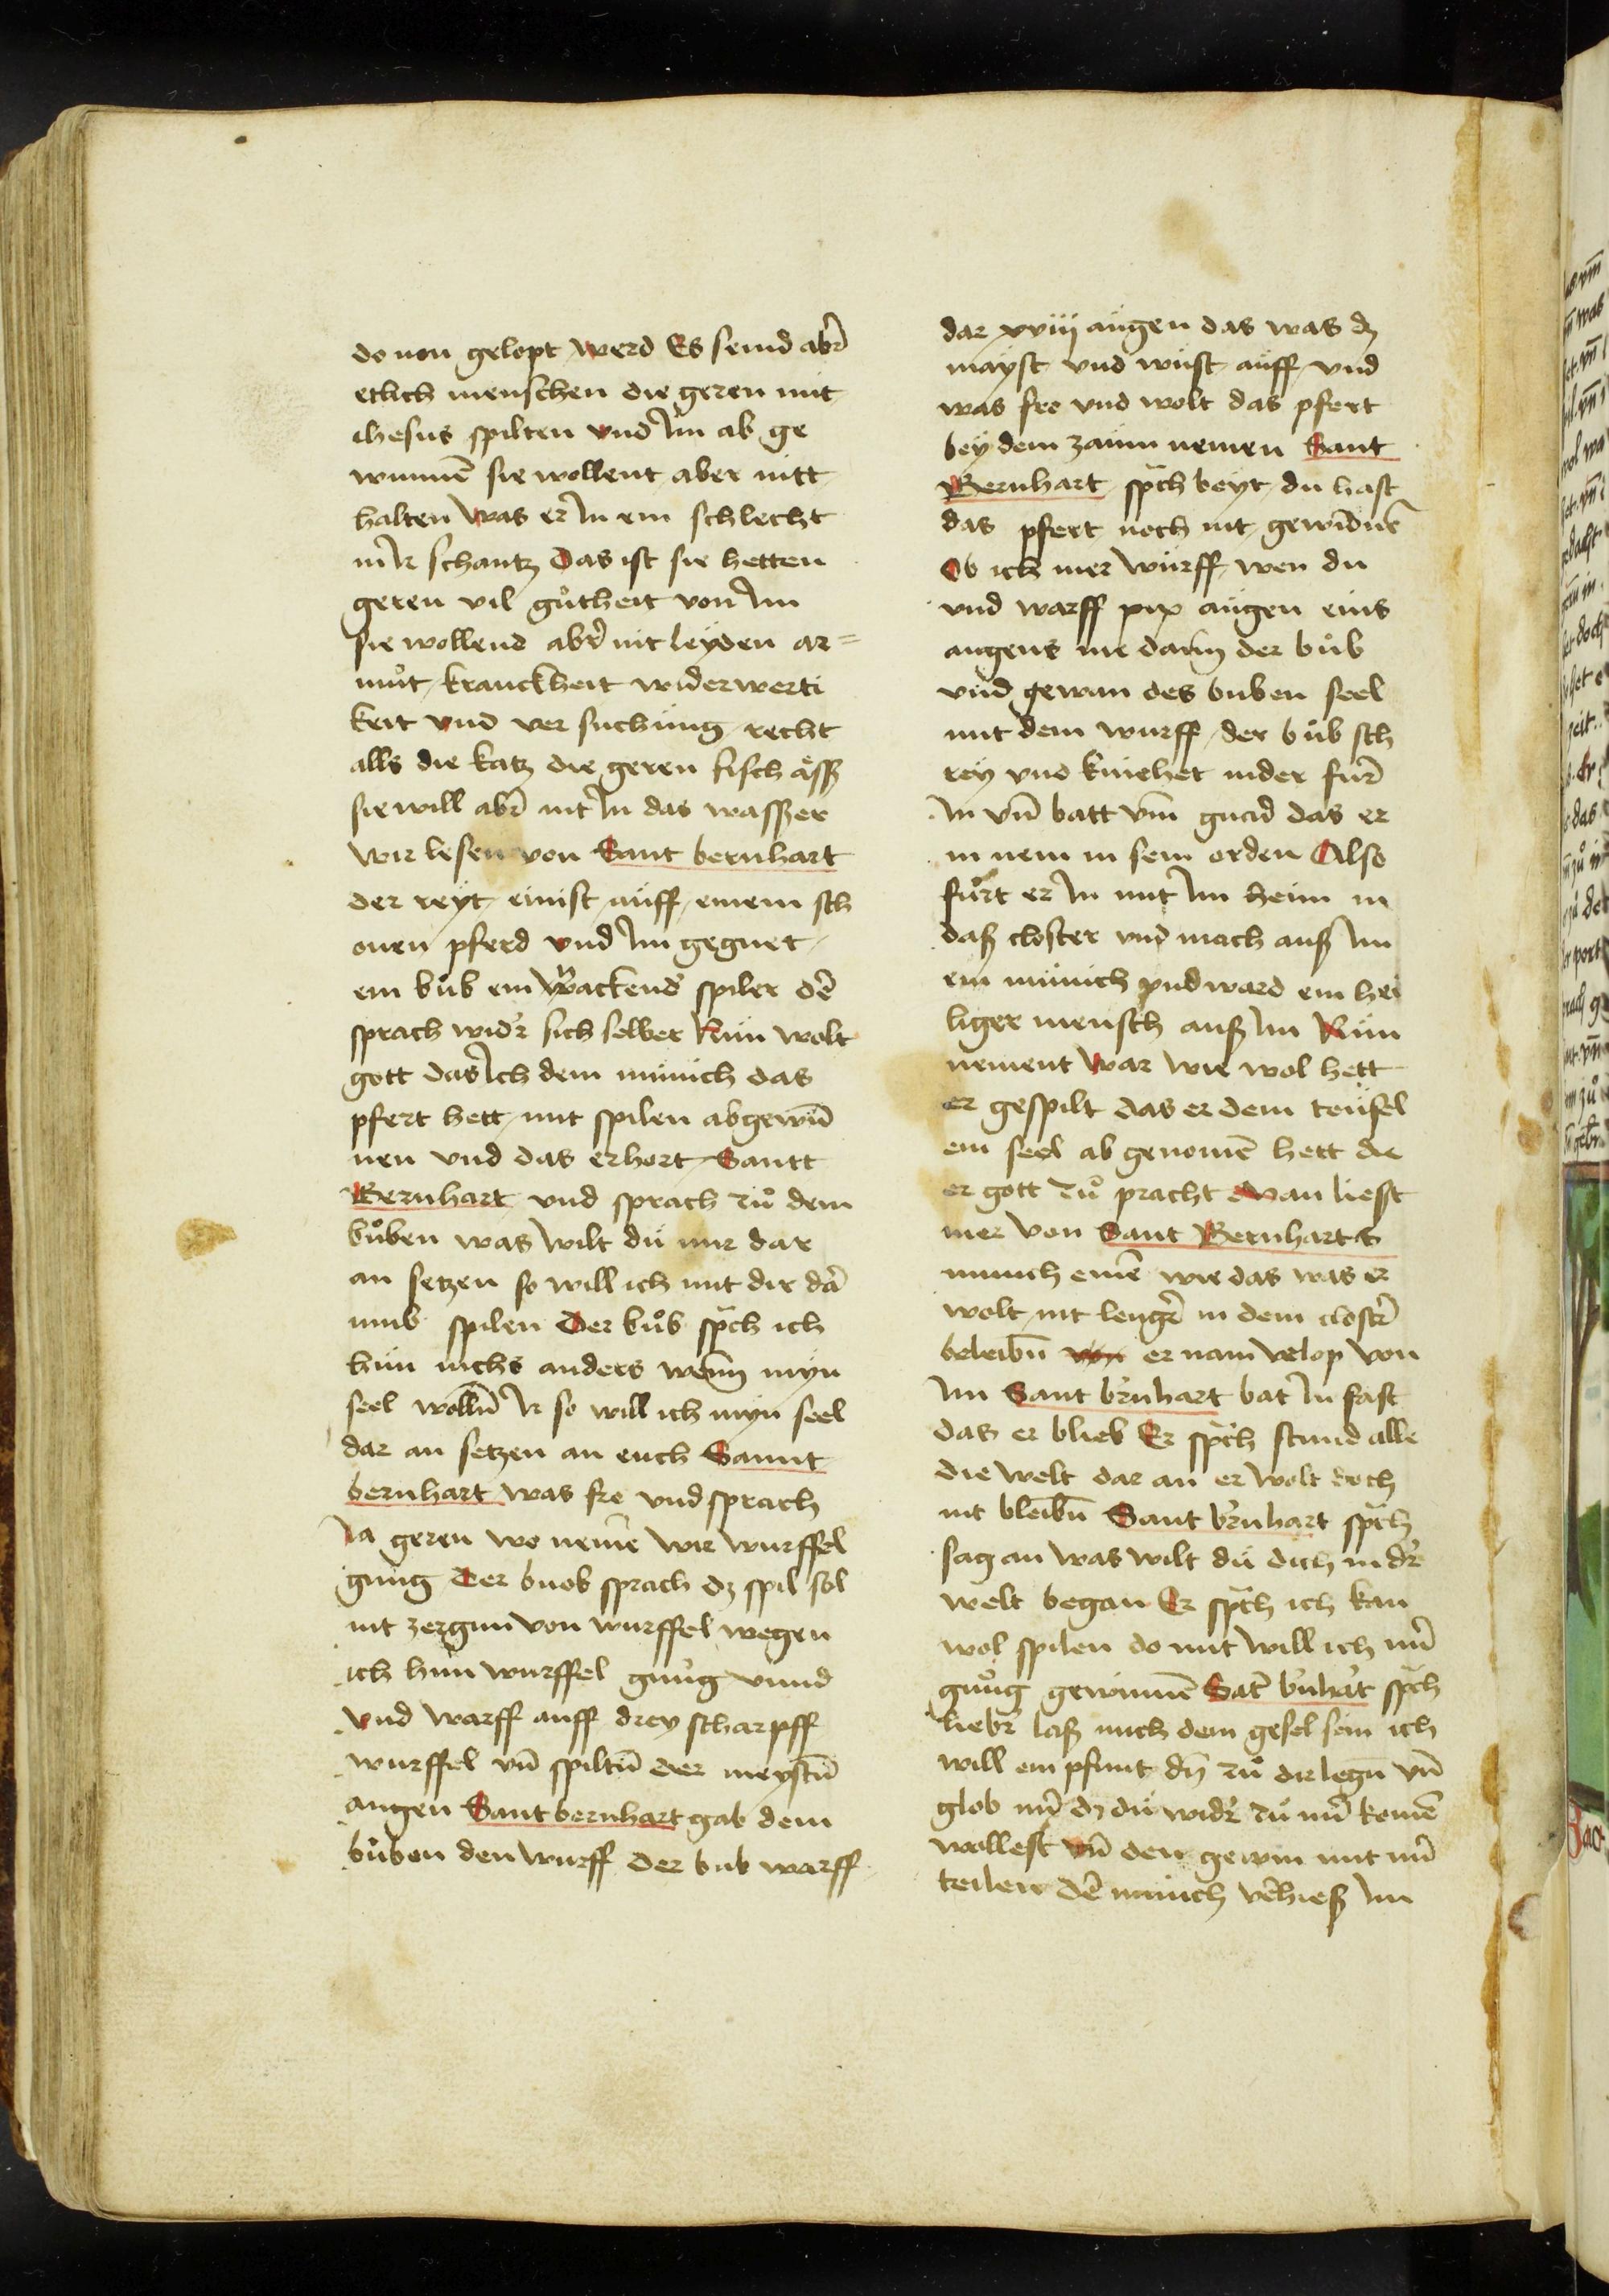 do von gelopt werd Es seind abr̄
etlich menschen die geren mit
ihesus spilten vnd Im ab ge
winnē sie wollent aber nitt
halten was er In ein schlecht
in Ir schantz Das ist sie hetten
geren vil gůtheit von Im
sie wollend abr̄ nit leyden ar=
můt kranckheit widerwerti
keit vnd versuchung recht
alls die katz die geren fisch åss
sie will abr̄ nit In das wasser
wir lesen von Sant bernhart
der reyt einist auff einem sch
onen pferd vnd Im gegnet
ein bůb ein wackend spiler dē
sprach wid'r sich selber Nun wolt
gott das Ich dem münich das
pfert hett mit spilen abgewū
nen vnd das erhort Santt
Bernhart vnd sprach zů dem
bůben was wilt dü mir dar
an setzen so will ich mit dir da
umb spilen Der bůb sp̄ch ich
hün nichs anders wenn myn
seel wollū Ir so will ich myn seel
dar an setzen an euch Sannt
bernhart was fro vnd sprach
Ia geren wo nemē wir wurffel
gnüg Der buob sprach dz spil sol
nit zergan von wurffel wegen
ich hün wurffel gnůg vnnd
vnd warff auff drey scharpff
wurffel vn̄ spiltn̄ der meystn̄
augen Sant bernhart gab dem
bůben den wurff der bub warff
dar xviij augen das was dz
mayst vnd wüst auff vnd
was fro vnd wolt das pfert
bey dem zaüm nemen Sant
Bernhart sp̄ch beyt du hast
das pfert noch nit gewūnē
Ob ich mer würff wen du
vnd warff xix augen eins
augens me dann der bůb
vnd gewan des buben seel
mit dem wurff der bůb sch
rey vnd kniehet nider fur̄
In vn̄ batt vm̄ gnad das er
in nem in sein orden Also
fůrt er In mit Im heim in
daß closter vnd mach auß Im
ein münich vnd ward ein hei
liger mensch auß Im Nün
nement war wie wol hett
er gespilt das er dem teüfel
ein seel ab genomē hett die
er gott zů pracht Man liest
mer von Sant Bernharts
münich einē wie das was er
wolt nit lengr̄ in dem clostr̄
beleibn̄ er nam velop von
Im Sant br̄nhart bat In fast
das er blieb Er sp̄ch stund alle
die welt dar an er wolt doch
nit bleibn̄ Sant br̄nhart sp̄ch
sag an was wilt dü dich in d'r
welt began Er sp̄ch ich kan
wol spilen do mit will ich mir̄
gnůg gewinnē Sāt br̄nhar̄t sp̄ch
liebr̄ laß mich dein gesel sein ich
will ein pfunt dn̄ zů dir legn̄ vn̄
glob mir̄ dz dü wid'r zü mir̄ komē
wollest vn̄ den gewin mit mir̄
teilen dē münich v̄hieß Im